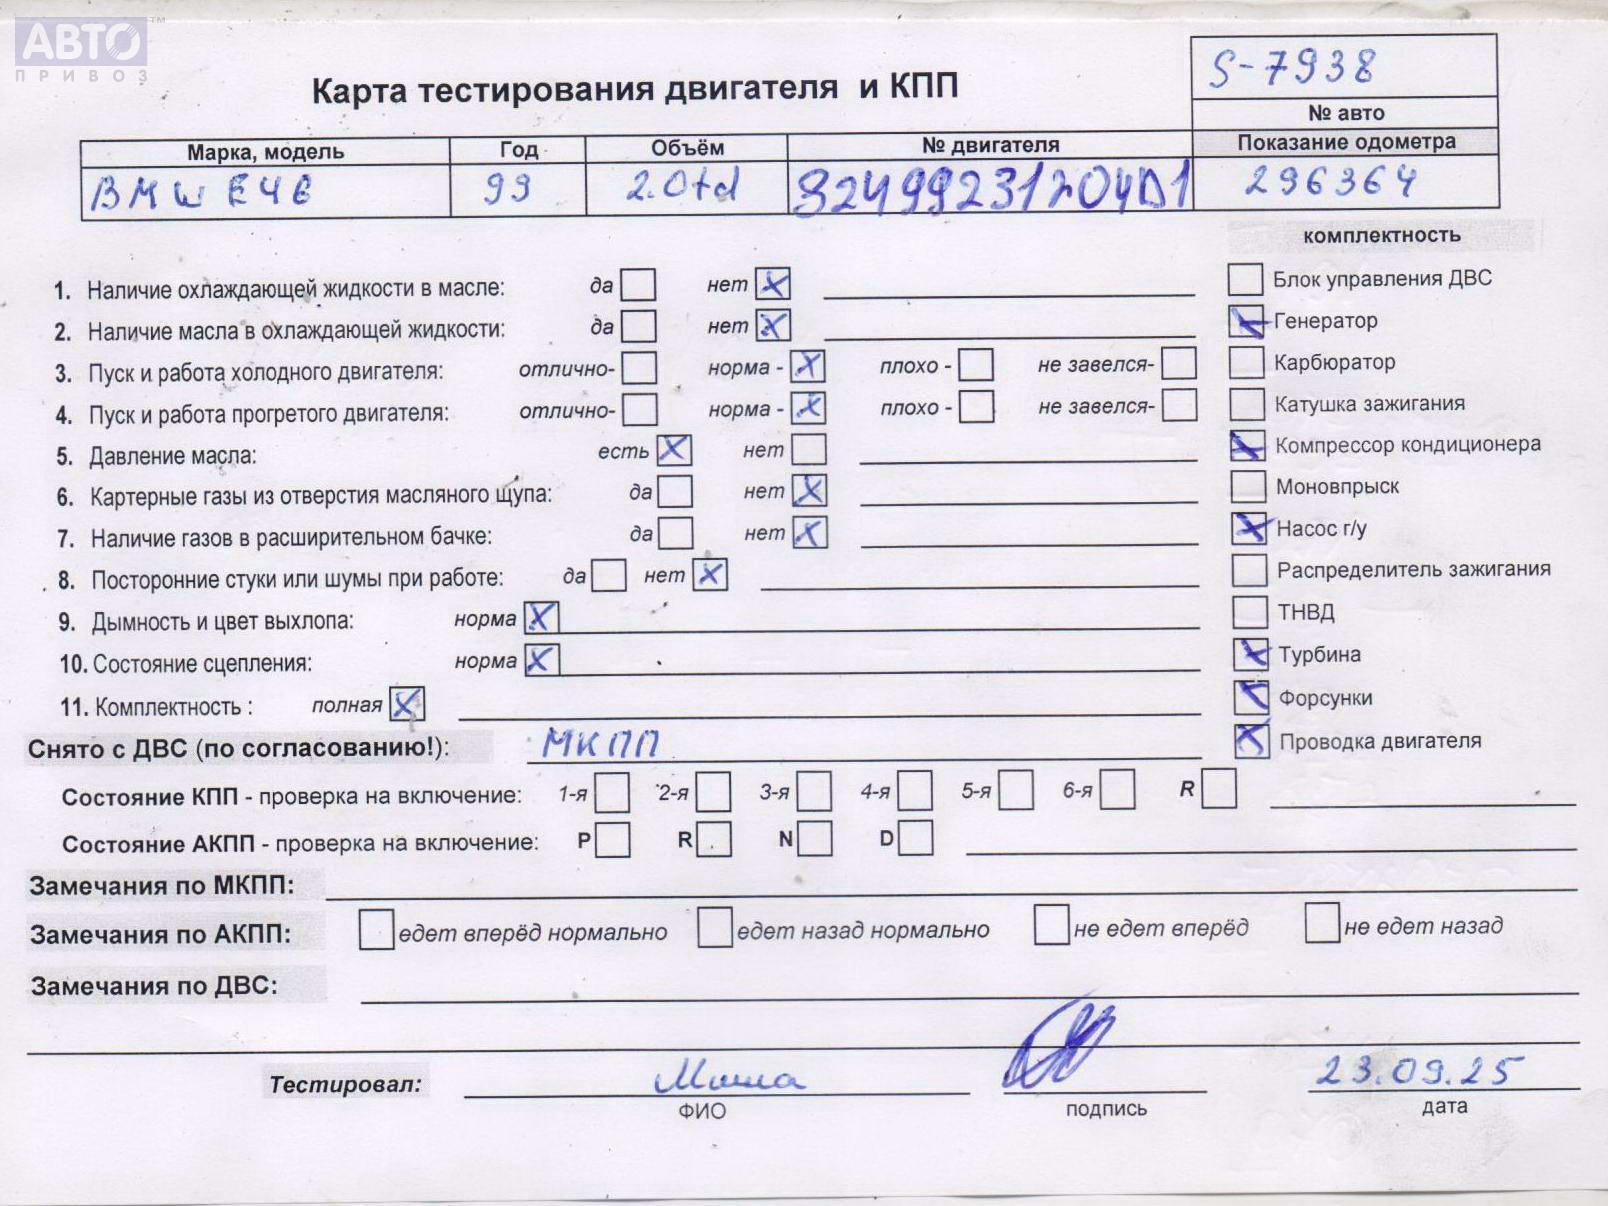 АВТО ™
ПРИВОЗ
S-7938
Карта тестирования двигателя и КПП
№ авто
Марка, модель Год Объём № двигателя Показание одометра
BMW E46 99 2.0td 32499231204D1 296364
комплектность
1. Наличие охлаждающей жидкости в масле: да нет X
Блок управления ДВС
2. Наличие масла в охлаждающей жидкости: да нет X
X Генератор
3. Пуск и работа холодного двигателя: отлично- норма - X плохо - не завелся-
Карбюратор
4. Пуск и работа прогретого двигателя: отлично- норма - X плохо - не завелся-
Катушка зажигания
5. Давление масла: есть X нет
X Компрессор кондиционера
6. Картерные газы из отверстия масляного щупа: да нет X
Моновпрыск
7. Наличие газов в расширительном бачке: да нет X
X Насос г/у
8. Посторонние стуки или шумы при работе: да нет X
Распределитель зажигания
9. Дымность и цвет выхлопа: норма X
ТНВД
10. Состояние сцепления: норма X
X Турбина
11. Комплектность : полная X
X Форсунки
Снято с ДВС (по согласованию!): МКПП
X Проводка двигателя
Состояние КПП - проверка на включение: 1-я 2-я 3-я 4-я 5-я 6-я R
Состояние АКПП - проверка на включение: P R N D
Замечания по МКПП:
Замечания по АКПП: едет вперёд нормально едет назад нормально не едет вперёд не едет назад
Замечания по ДВС:
Тестировал: Миша 23.09.25
ФИО подпись дата